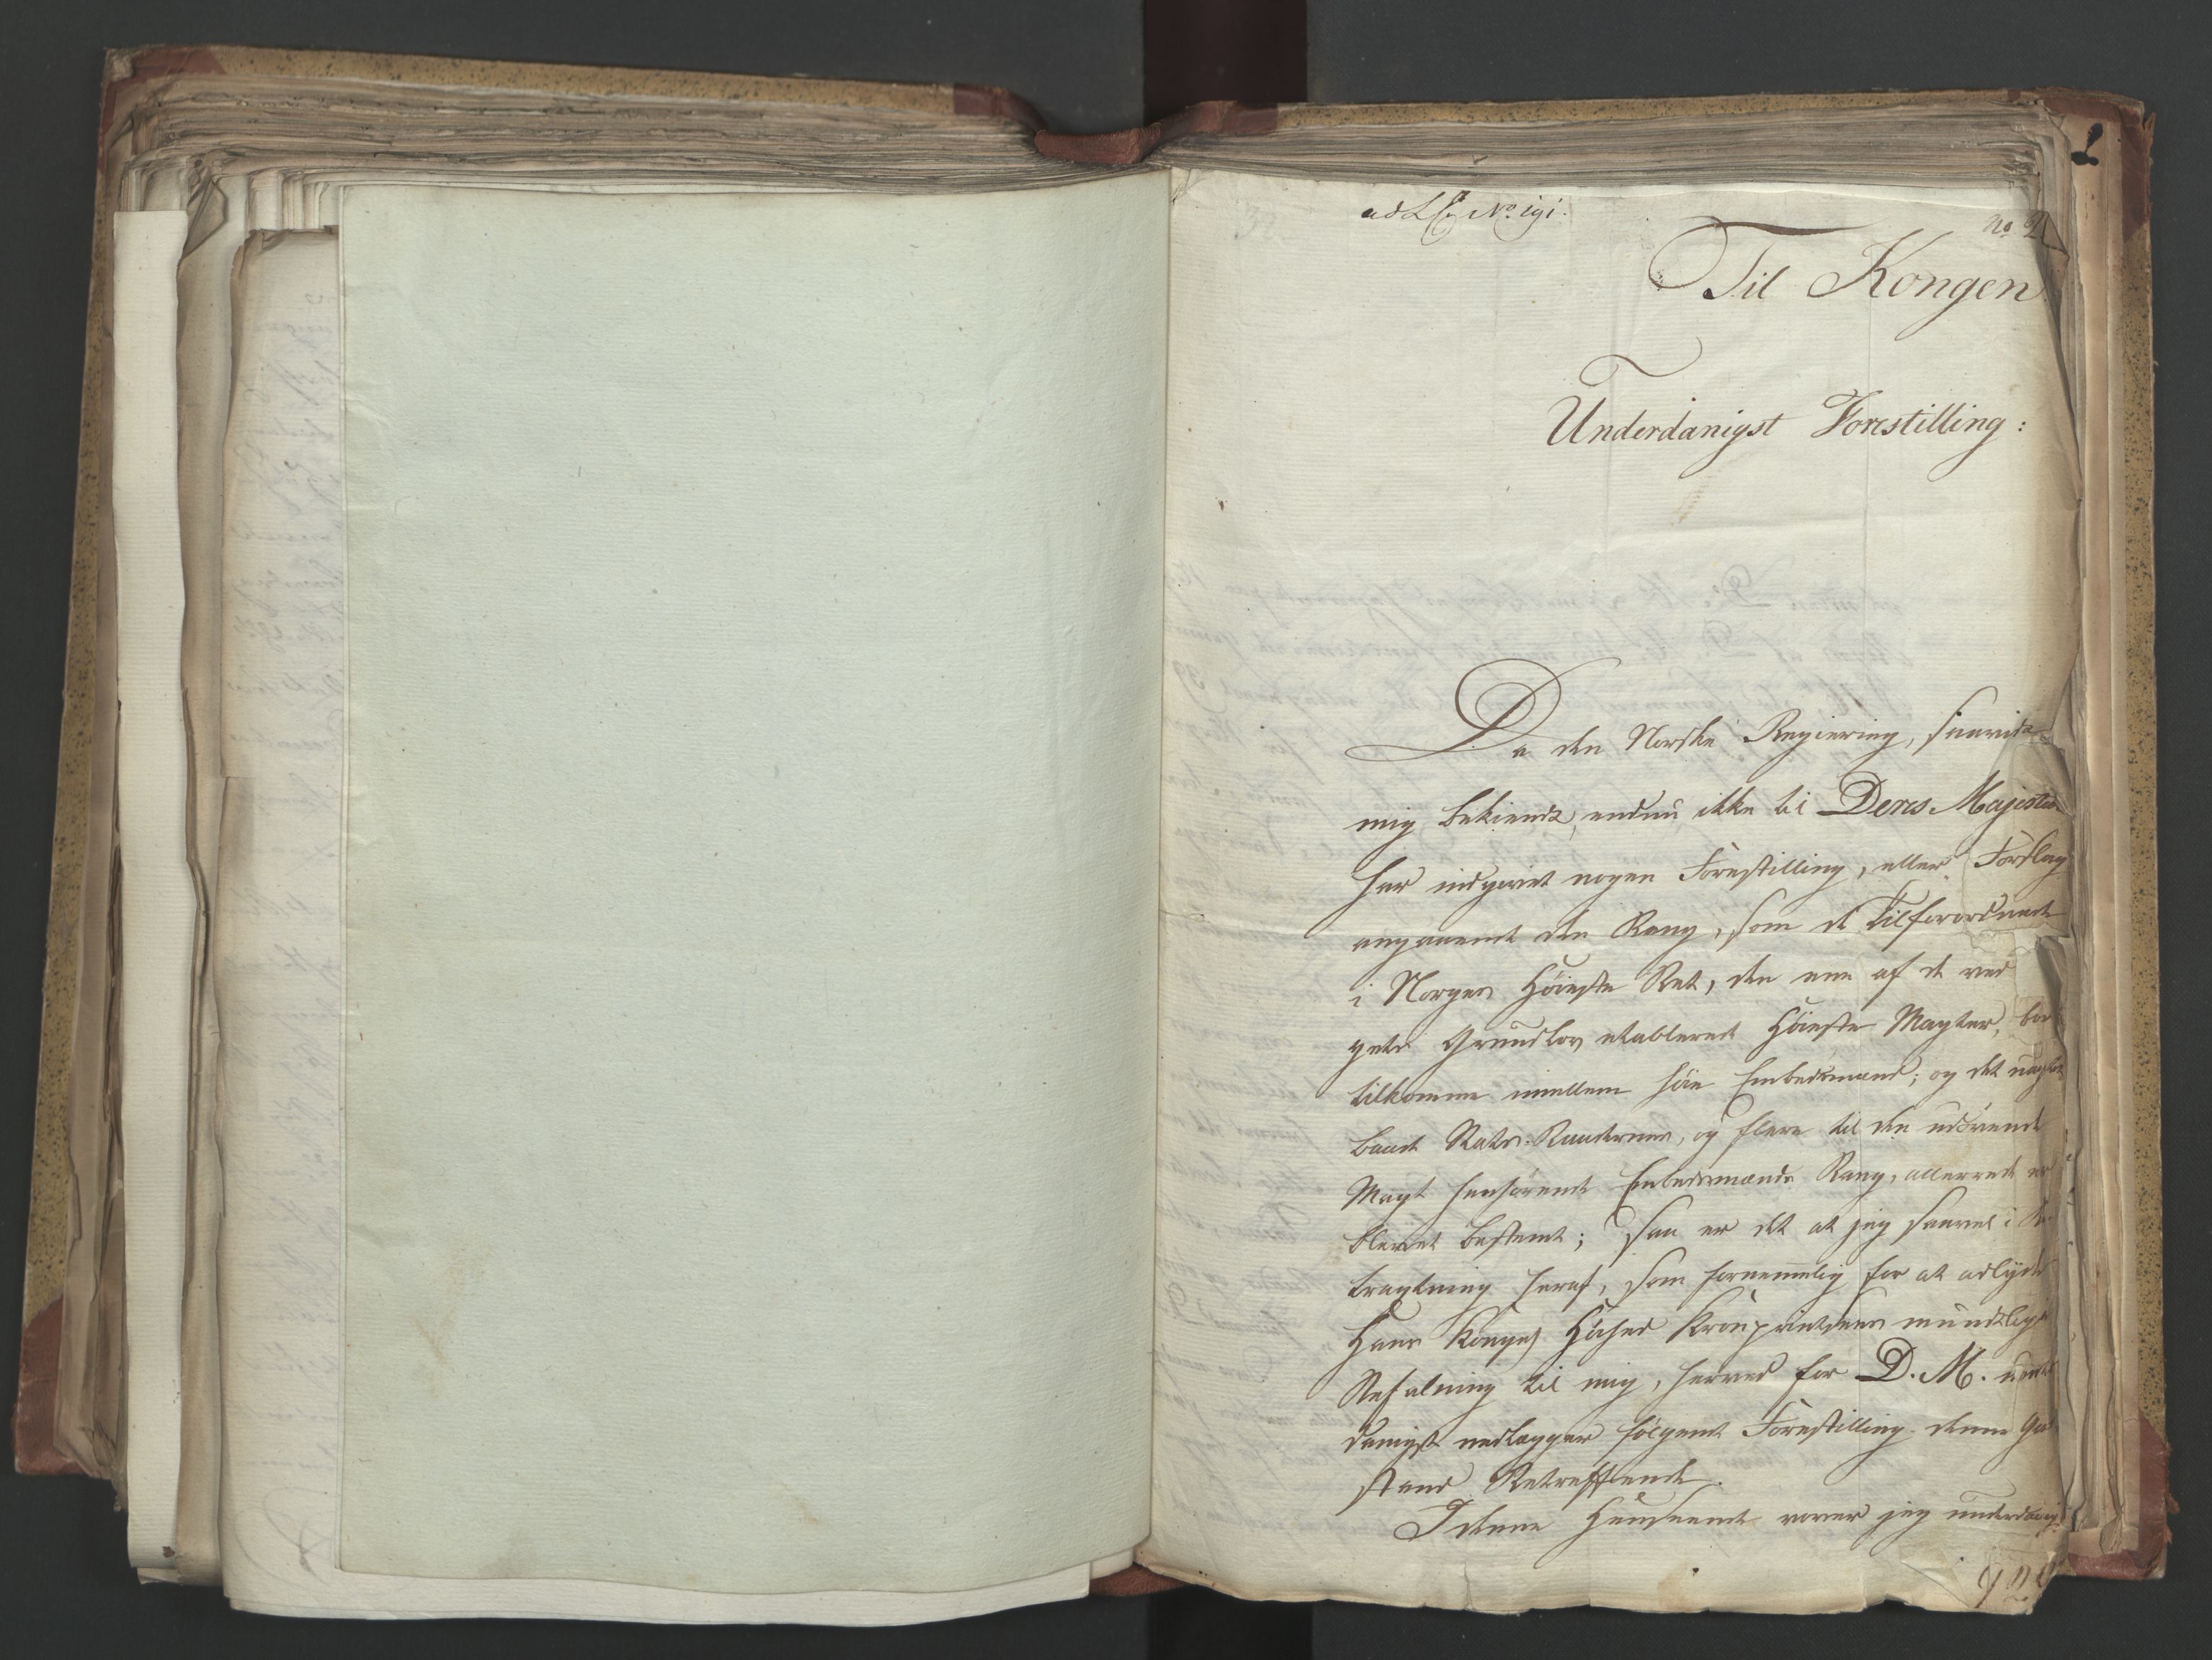 No 191.
No
Til Kongen
Underdanigst Forestilling:
Da den Norske Regiering, saavidt
mig bekiendt, endnu ikke til Deres Majestæt
har indgivet nogen Forestilling, eller Forslag
angaaende den Rang, som de Tilforordnede
i Norges Høieste Ret, den ene af de ved
Grundlov etablerede Høieste Magter, bør
tilkomme imellem høie Embedsmænd; og det
Stats-Raadernes, og flere til den udøvende
Magt henhørende Embedsmænds Rang, allerede er
blevet bestemt; saa er det at jeg saavel i
tragtning heraf, som fornemmelig for at adlyde
Hans Kongel Høihed Kronprintsens mundtlige
Befalning til mig, herved for D. M. under
danigst nedlægger følgende Forestilling denne Gien
stand Betreffende.
I denne Henseende vover jeg underdanigst